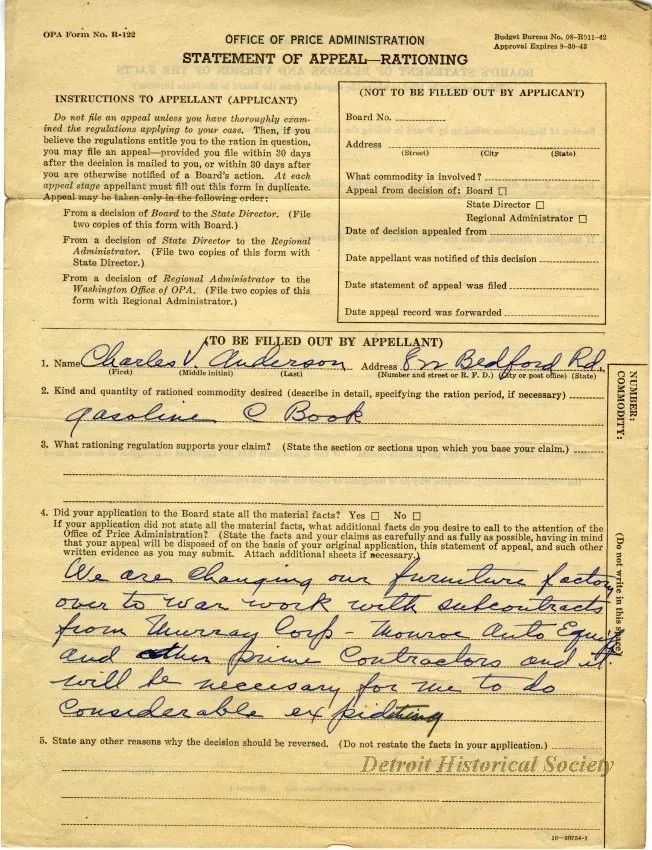 OPA Form No. R-122
OFFICE OF PRICE ADMINISTRATION
Budget Bureau No. 08-R011-42
Approval Expires 9-30-43
STATEMENT OF APPEAL—RATIONING
INSTRUCTIONS TO APPELLANT (APPLICANT)
Do not file an appeal unless you have thoroughly exam-
ined the regulations applying to your case. Then, if you
believe the regulations entitle you to the ration in question,
you may file an appeal—provided you file within 30 days
after the decision is mailed to you, or within 30 days after
you are otherwise notified of a Board's action. At each
appeal stage appellant must fill out this form in duplicate.
Appeal may be taken only in the following order:
From a decision of Board to the State Director. (File
two copies of this form with Board.)
From a decision of State Director to the Regional
Administrator. (File two copies of this form with
State Director.)
From a decision of Regional Administrator to the
Washington Office of OPA. (File two copies of this
form with Regional Administrator.)
(NOT TO BE FILLED OUT BY APPLICANT)
Board No.
Address
(Street) (City (State)
What commodity is involved?
Appeal from decision of: Board ☐
State Director ☐
Regional Administrator ☐
Date of decision appealed from
Date appellant was notified of this decision
Date statement of appeal was filed
Date appeal record was forwarded
(TO BE FILLED OUT BY APPELLANT)
1. Name Charles V. Anderson Address Bedford Rd.
(First) (Middle initial) (Last) (Number and street or R. F. D.) (City or post office) (State)
2. Kind and quantity of rationed commodity desired (describe in detail, specifying the ration period, if necessary)
gasoline C Book
3. What rationing regulation supports your claim? (State the section or sections upon which you base your claim.)
4. Did your application to the Board state all the material facts? Yes ☐ No ☐
If your application did not state all the material facts, what additional facts do you desire to call to the attention of the
Office of Price Administration? (State the facts and your claims as carefully and as fully as possible, having in mind
that your appeal will be disposed of on the basis of your original application, this statement of appeal, and such other
written evidence as you may submit. Attach additional sheets if necessary.)
We are changing our furniture factory
over to war work with subcontracts
from Murray Corp - Monroe Auto Equip
and other prime Contractors and it
will be necessary for me to do
Considerable expiditing
5. State any other reasons why the decision should be reversed. (Do not restate the facts in your application.)
NUMBER:
COMMODITY:
(Do not write in this space)
Detroit Historical Society
16—30754-1